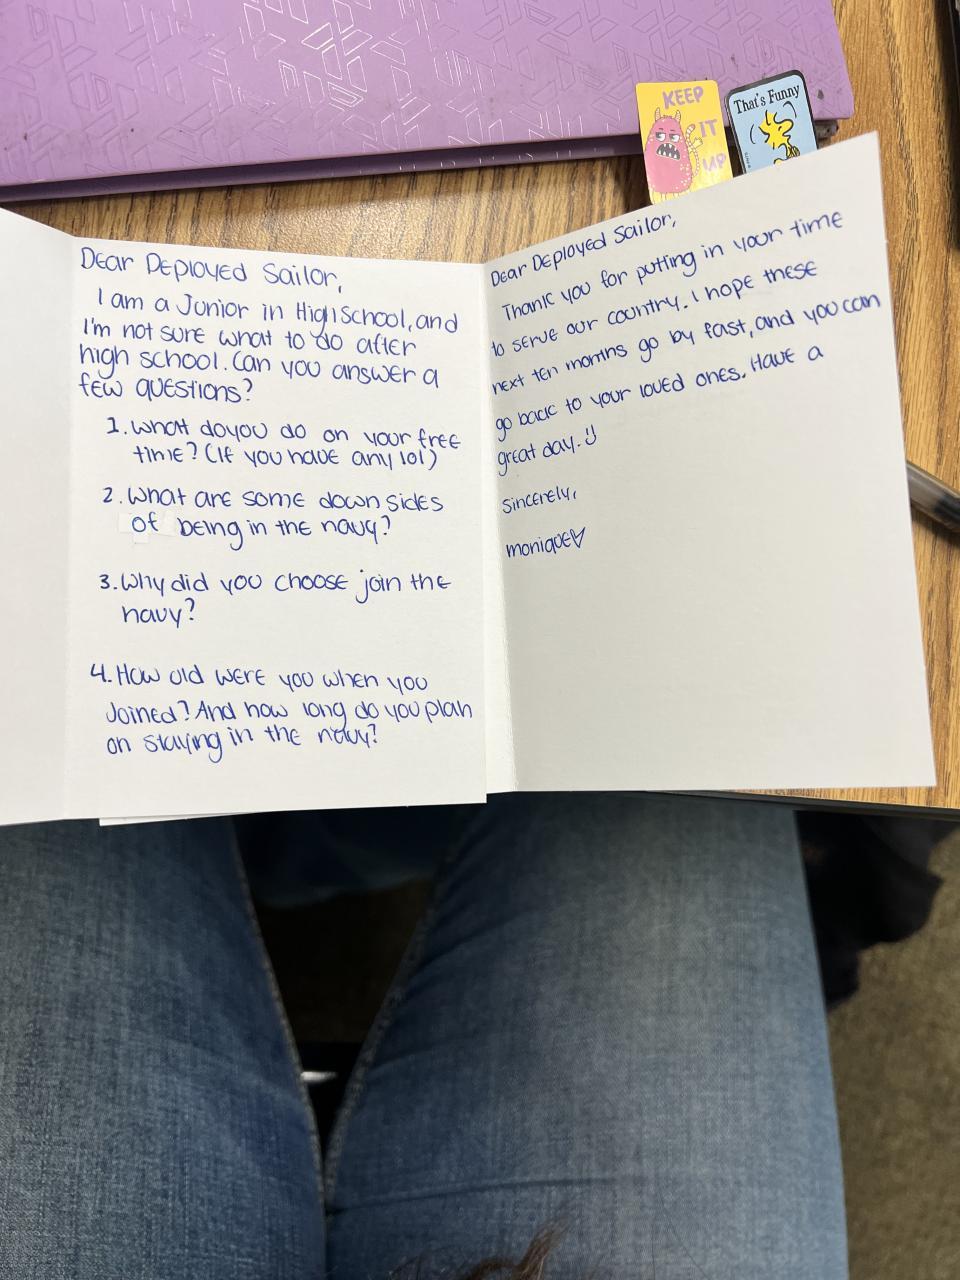 KEEP
IT
UP
That's Funny
Dear Deployed Sailor,
I am a Junior in High School, and
I'm not sure what to do after
high school. Can you answer a
few questions?
1. What do you do on your free
time? (If you have any lol)
2. What are some down sides
of being in the navy?
3. Why did you choose join the
navy?
4. How old were you when you
Joined? And how long do you plan
on staying in the navy?
Dear Deployed Sailor,
Thank you for putting in your time
to serve our country. I hope these
next ten months go by fast, and you can
go back to your loved ones. Have a
great day. :)
Sincerely,
monique♡